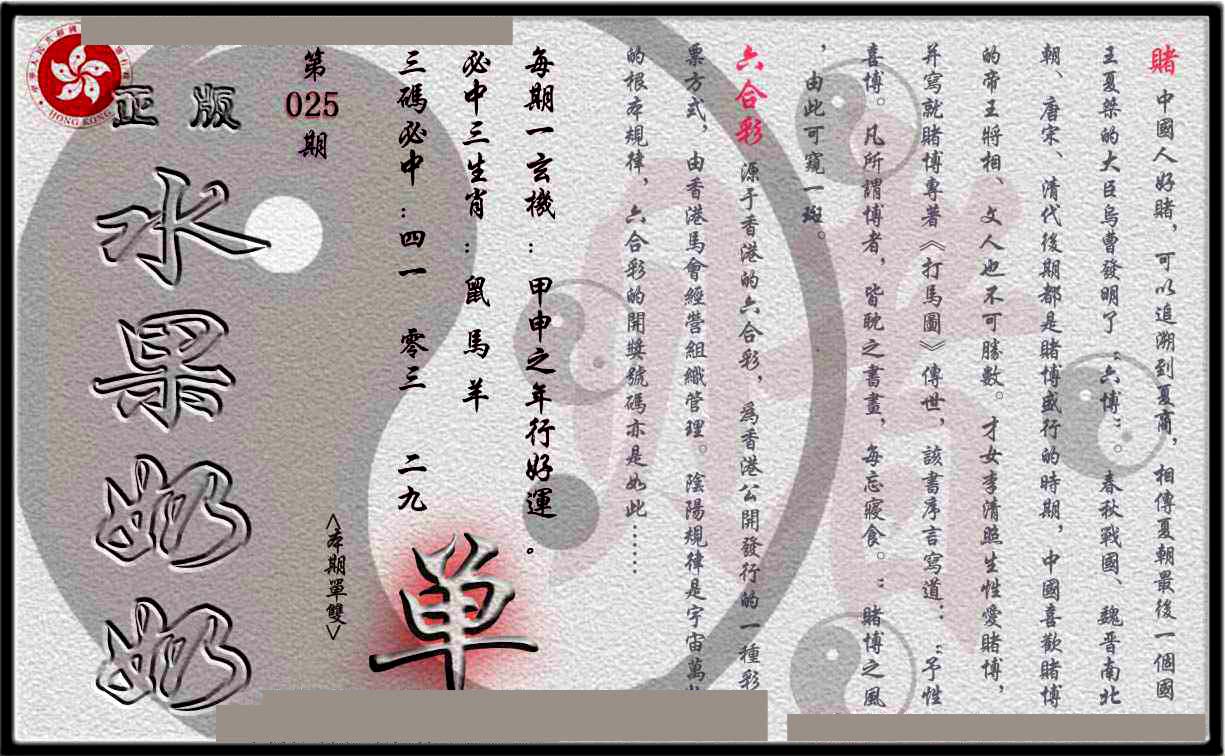 賭 中國人好賭，可以追溯到夏商，相傳夏朝最後一個國
王夏桀的大臣烏曹發明了“六博”。春秋戰國、魏晋南北
朝、唐宋、清代後期都是賭博盛行的時期，中國喜歡賭博
的帝王將相、文人也不可勝數。才女李清照生性愛賭博，
并寫就賭博專著《打馬圖》傳世，該書序言寫道：“予性
喜博。凡所謂博者，皆耽之書畫，每忘寢食。”賭博之風
，由此可窺一斑。
六合彩 源于香港的六合彩，為香港公開發行的一種彩
票方式，由香港馬會經營組織管理。陰陽規律是宇宙萬
的根本規律，六合彩的開獎號碼亦是如此……
每期一玄機：甲申之年行好運。
必中三生肖：鼠 馬 羊
三碼必中：四一 零三 二九
单
<本期單雙>
第
025
期
正版
水果奶奶
HONG KONG